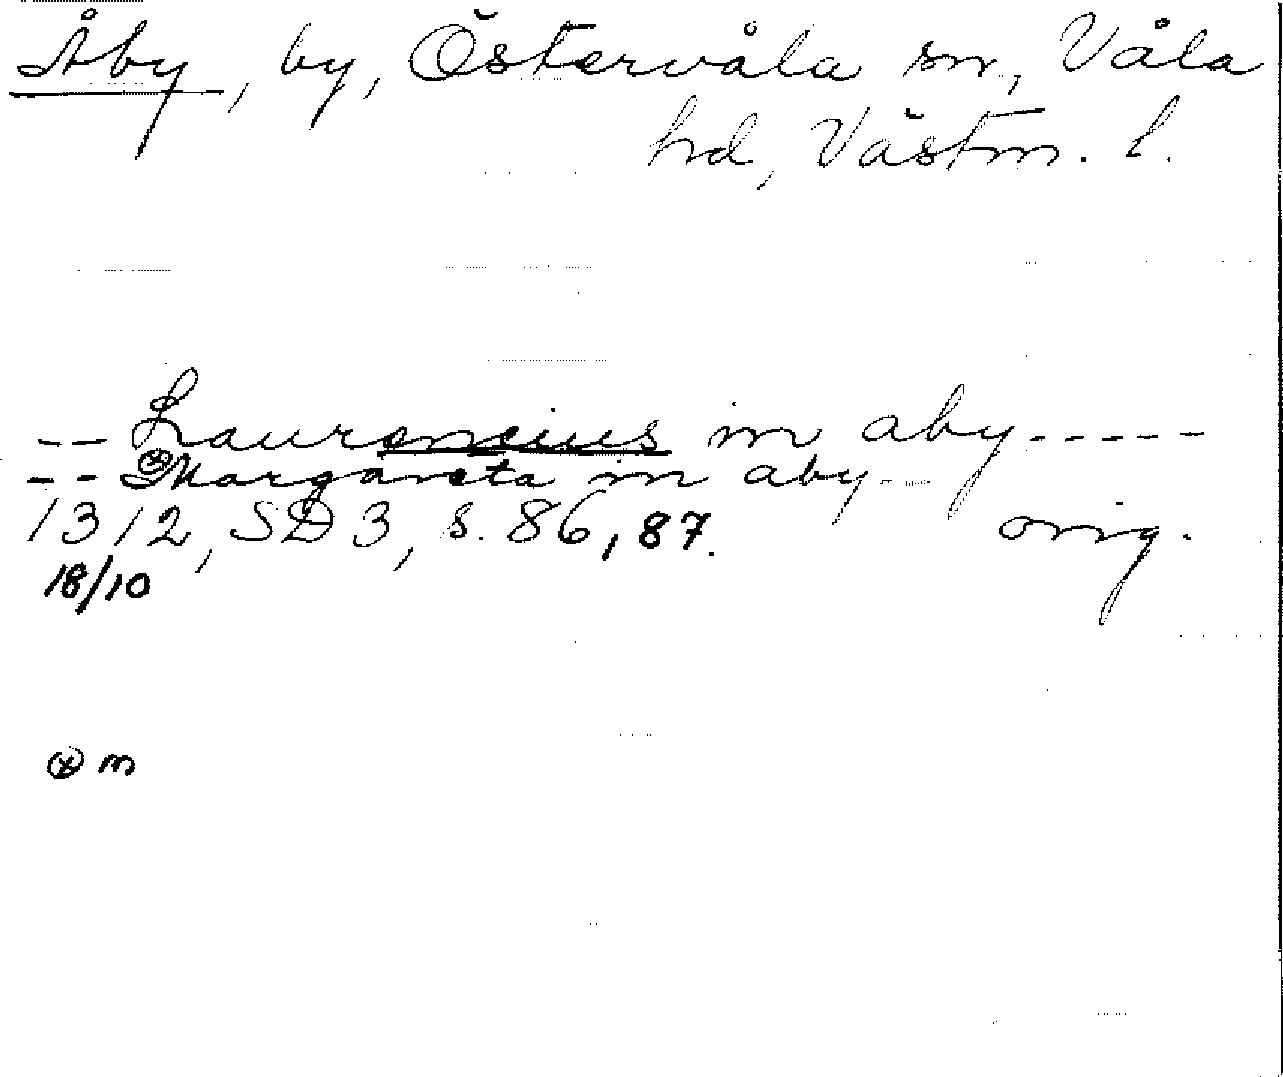 Åby, by, Östervåla sn, Våla
hd, Västm. l.
-- Laurencius in aby -----
-- ⊛Margareta in aby --
1312, SD 3, s. 86, 87. orig.
18/10
⊛ m